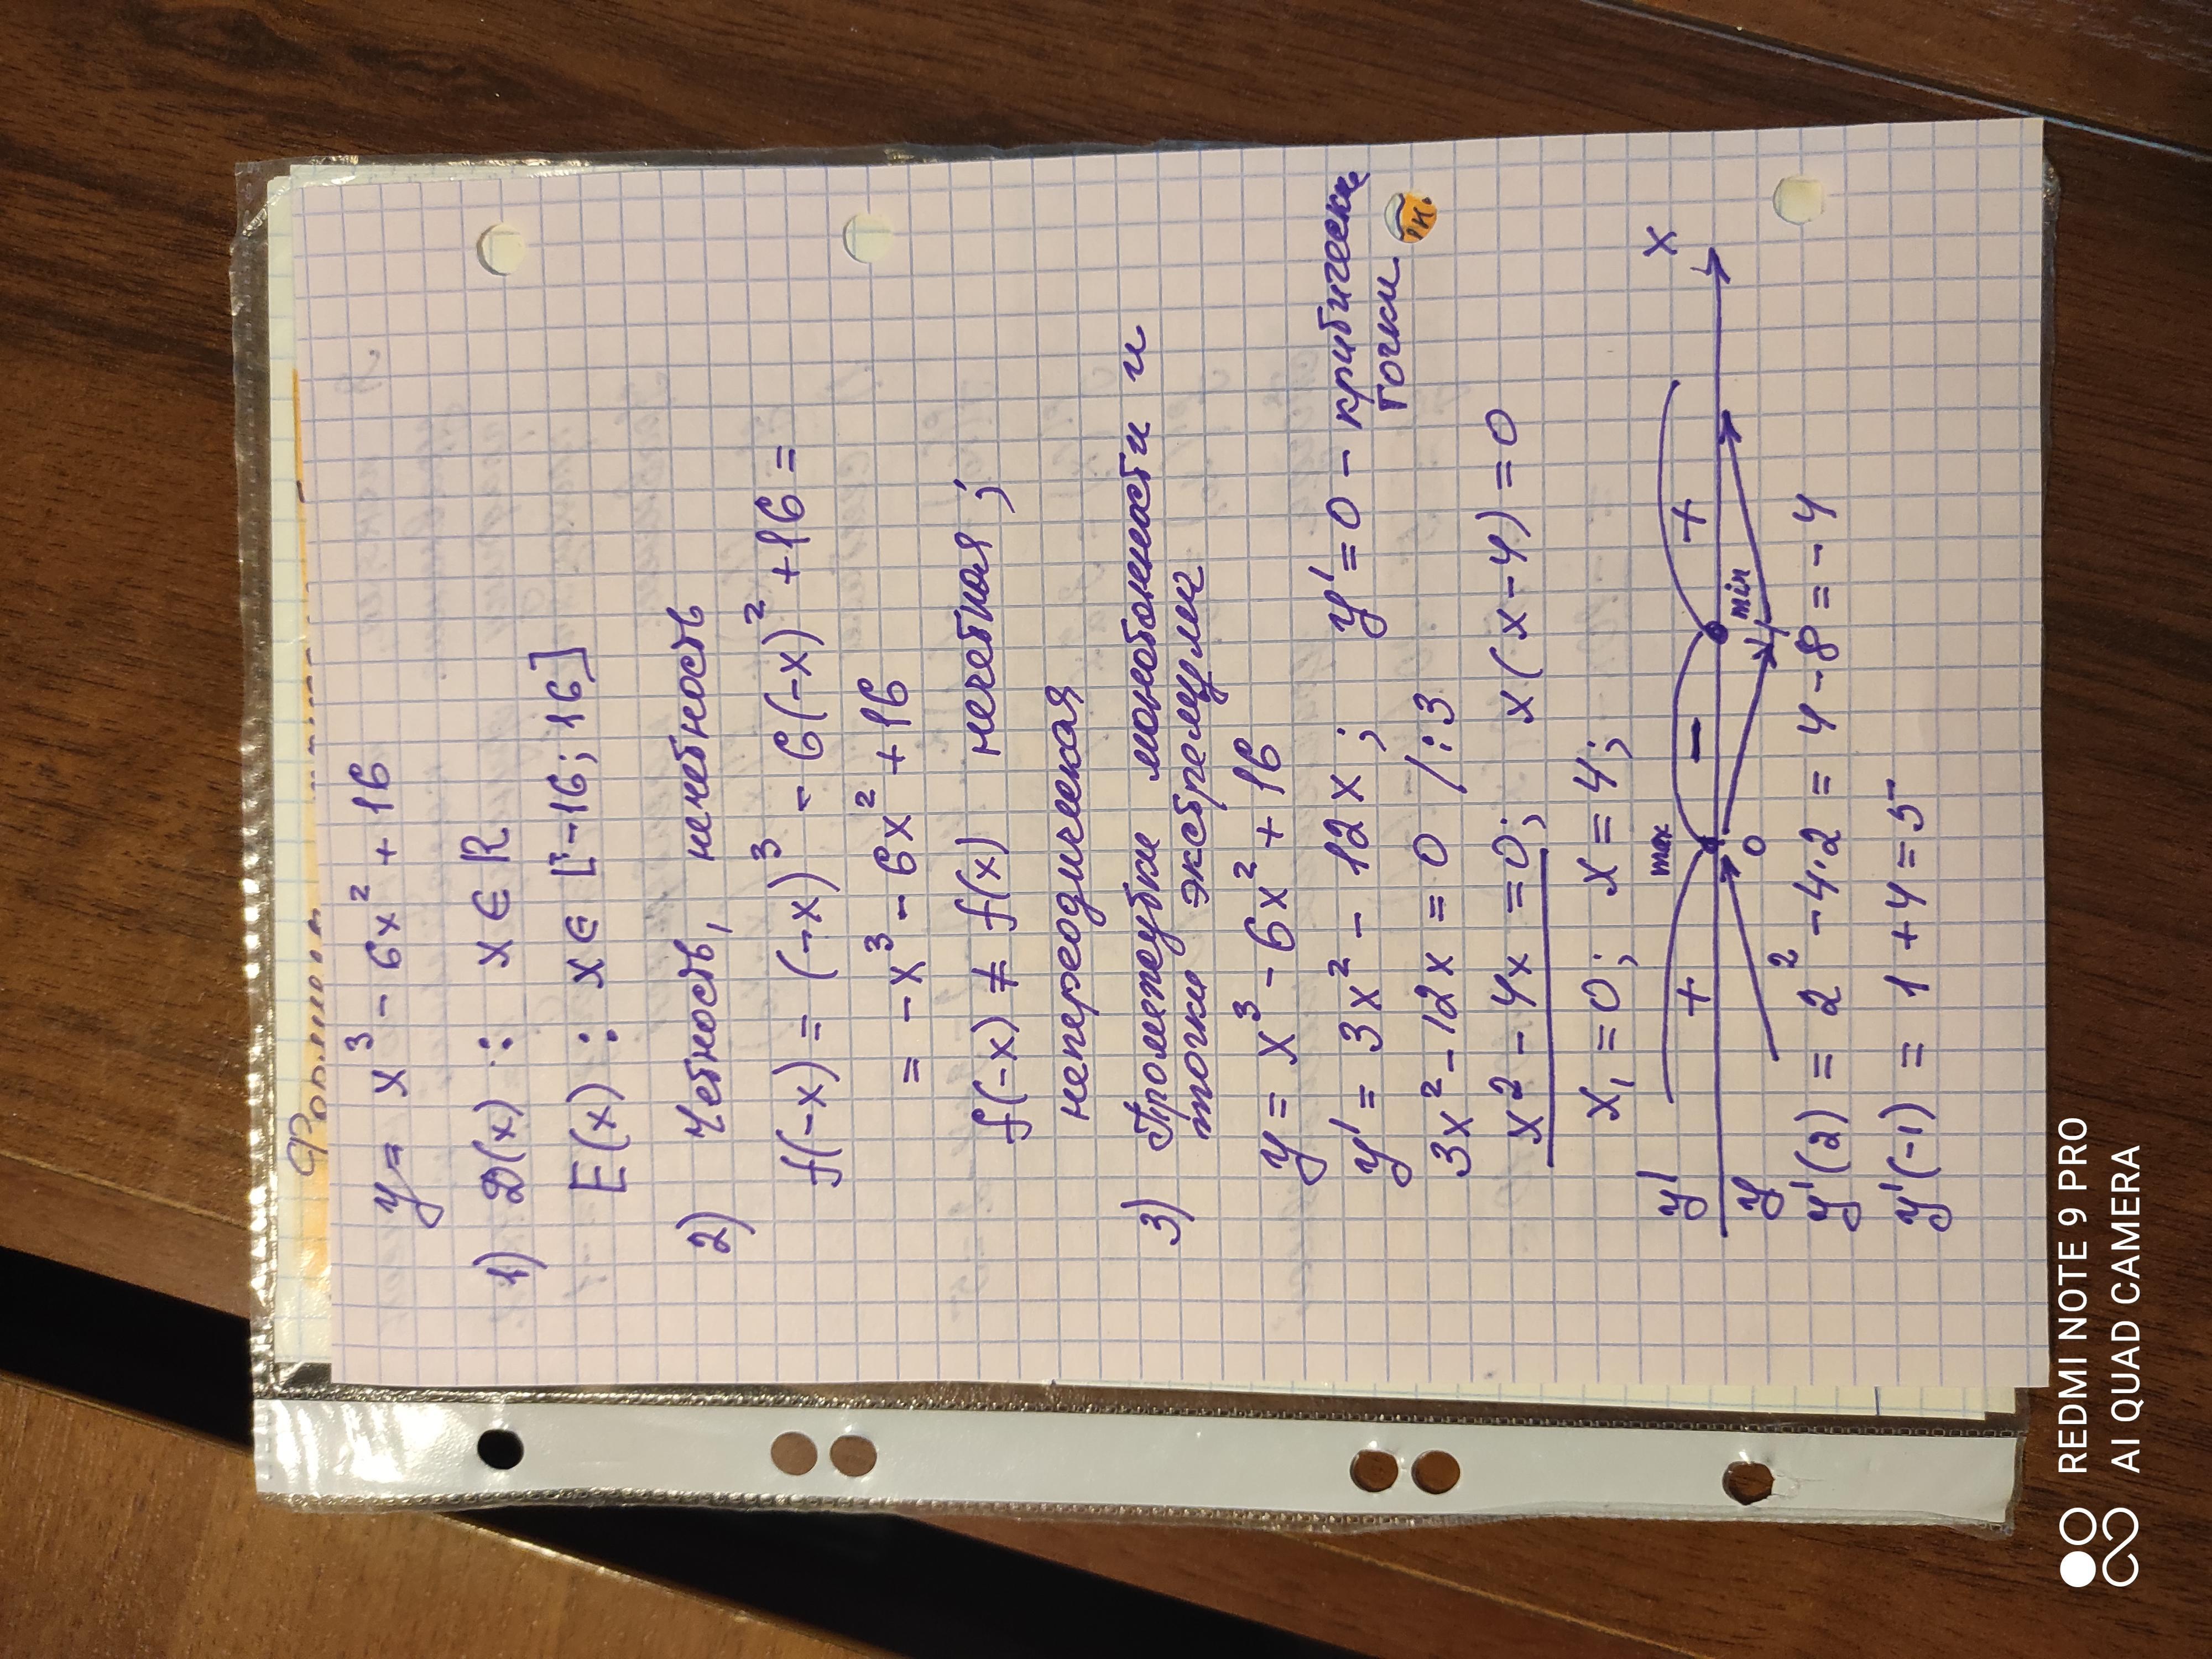 y = x³ - 6x² + 16
1) D(x) : x ∈ R
E(x) : x ∈ [-16; 16]
2) Четность, нечетность
f(-x) = (-x)³ - 6(-x)² + 16 =
= -x³ - 6x² + 16
f(-x) ≠ f(x) нечетная;
непереодическая
3) Промежутки монотонности и
точки экстремума
y = x³ - 6x² + 16
y' = 3x² - 12x; y' = 0 - критическ
точки
3x² - 12x = 0 /:3
x² - 4x = 0; x(x-4) = 0
x₁ = 0; x = 4;
y' + max - + x
y 0 min 4
y'(2) = 2² - 4·2 = 4 - 8 = -4
y'(-1) = 1 + 4 = 5
REDMI NOTE 9 PRO
AI QUAD CAMERA